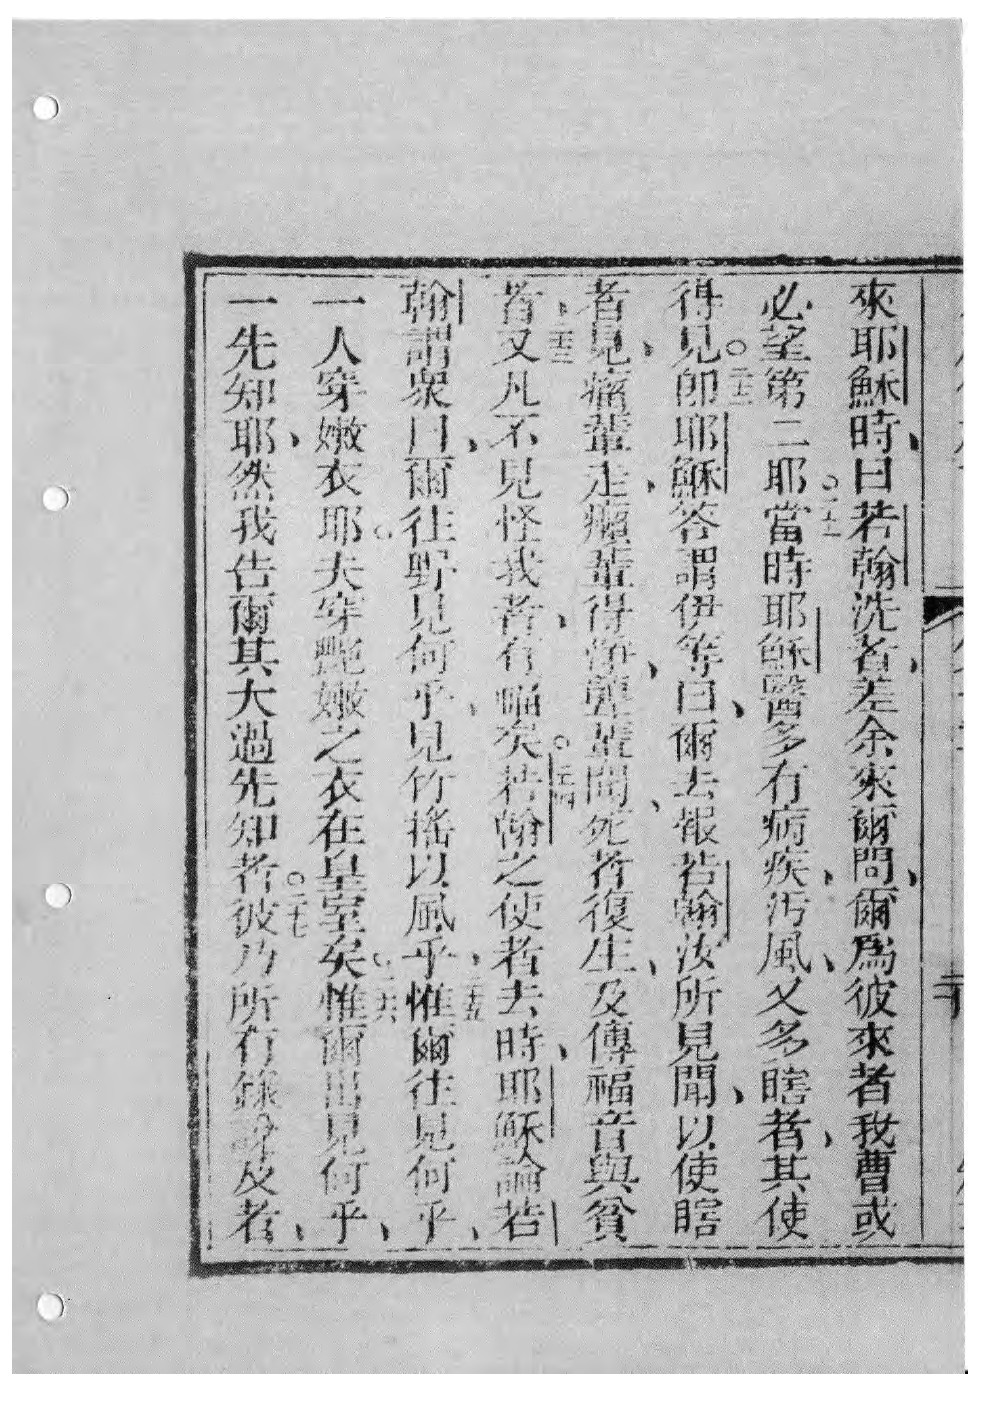 來耶穌時、曰若翰洗者、差余來爾問、爾為彼來者我曹或
必望第二耶○二十一當時耶穌醫多有病疾、汚風、又多瞎者、其使
得見○二十二即耶穌答謂伊等曰、爾去報若翰汝所見聞、以使瞎
者見、瘸輩走、癩輩得淨、聾輩聞、死者復生、及傳福音與貧
者、二十三又凡不見怪我者、有福矣○二十四若翰之使者去時、耶穌論若
翰謂眾曰、爾往野見何乎、見竹搖以風乎、二十五惟爾往見何乎、
一人穿嫩衣耶○夫穿艷嫩之衣在皇室矣○二十六惟爾出見何乎、
一先知耶、然我告爾其大過先知者○二十七彼乃所有錄說及者、